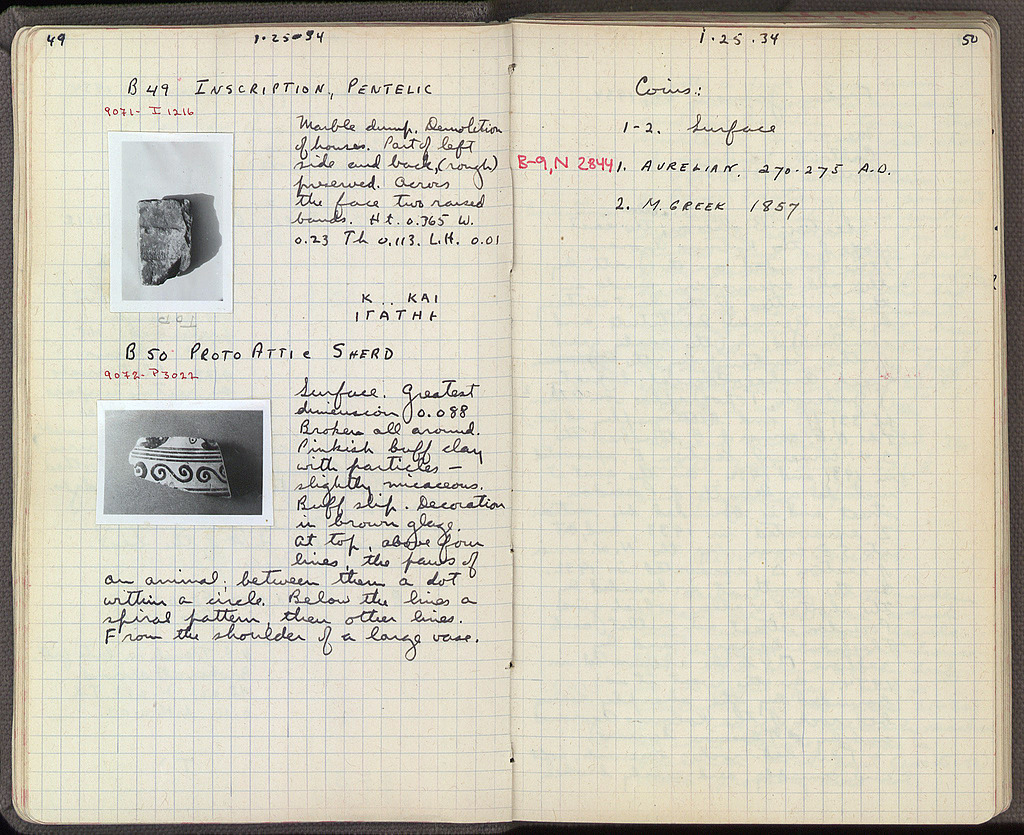 49
1·25·34
B 49 INSCRIPTION, PENTELIC
9071- I 1216
Marble dump. Demolition
of houses. Part of left
side and back, (rough)
preserved. Across
the face two raised
bands. Ht. 0.365 W.
0.23 Th 0.113. L.H. 0.01
K .. KAI
ITATHH
B 50 PROTO ATTIC SHERD
9072- P3022
Surface. Greatest
dimension 0.088
Broken all around.
Pinkish buff clay
with particles –
slightly micaceous.
Buff slip. Decoration
in brown glaze.
At top, above four
lines, the paws of
an animal; between them a dot
within a circle. Below the lines a
spiral pattern, then other lines.
From the shoulder of a large vase.
1·25·34
50
Coins:
1-2. Surface
B-9, N 2844 1. AURELIAN. 270-275 A.D.
2. M. GREEK 1857